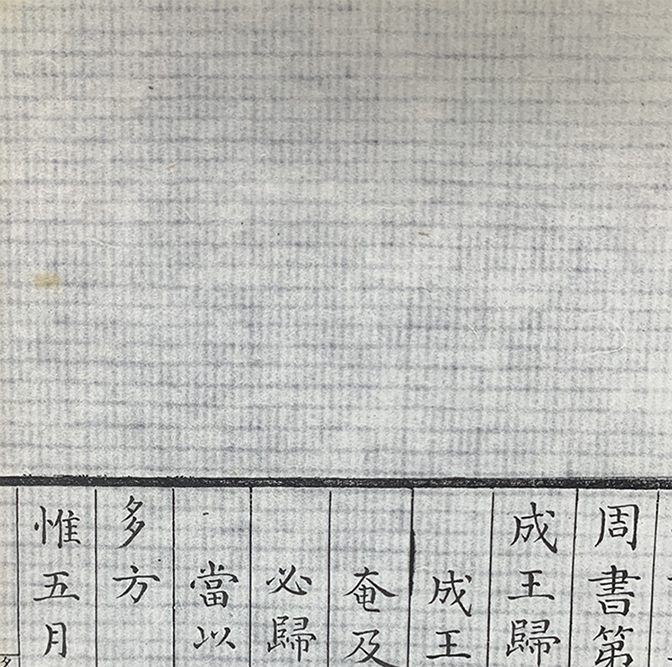 周書第
成王歸
成王
奄及
必歸
當以
多方
惟五月